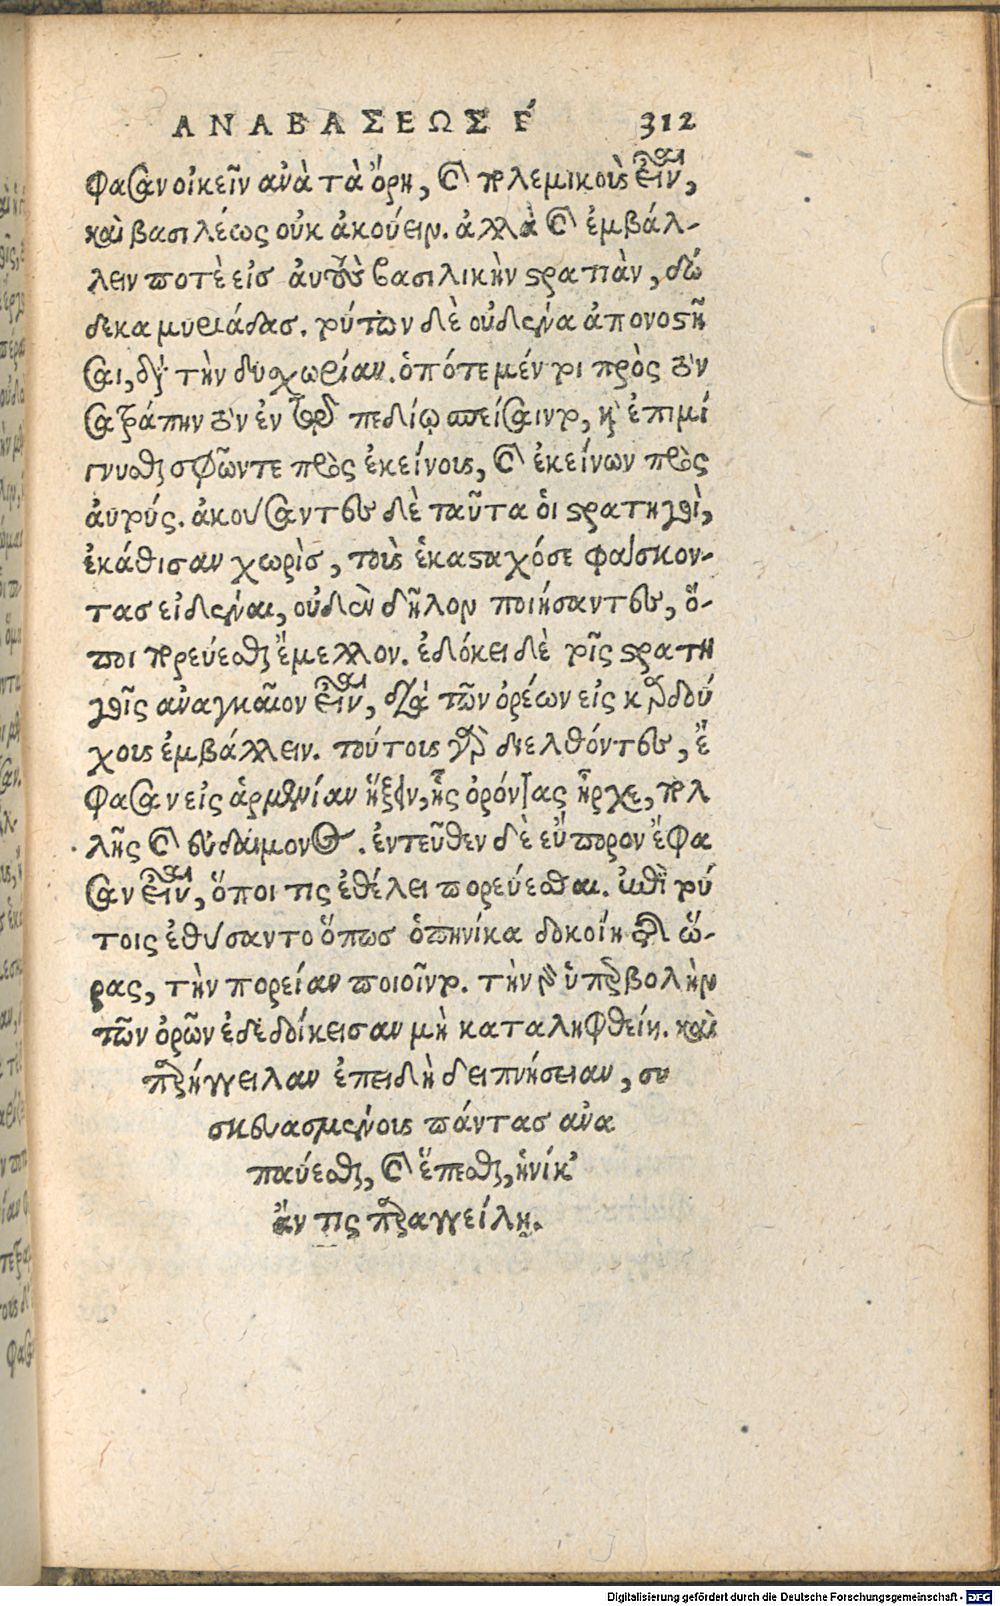 ΑΝΑΒΑΣΕΩΣ Γ΄ 312
φασαν οἰκεῖν ἀνὰ τὰ ὄρη, καὶ πολεμικοὺς εἶναι,
καὶ βασιλέως οὐκ ἀκούειν. ἀλλὰ καὶ ἐμβάλ-
λειν ποτὲ εἰς αὐτοὺς βασιλικὴν στρατιὰν, δώ
δεκα μυριάδας. τούτων δὲ οὐδένα ἀπονοστῆ
σαι, διὰ τὴν δυσχωρίαν. ὁπότε μέν τοι πρὸς τὸν
σατράπην τὸν ἐν τῷ πεδίῳ σπείσαιντο, καὶ ἐπιμί
γνυσθαι σφῶν τε πρὸς ἐκείνους, καὶ ἐκείνων πρὸς
αὐτούς. ἀκούσαντες δὲ ταῦτα οἱ στρατηγοὶ,
ἐκάθισαν χωρὶς, τοὺς ἑκασταχόσε φάσκον-
τας εἰδέναι, οὐδὲν δῆλον ποιήσαντες, ὅ-
ποι πορεύεσθαι ἔμελλον. ἐδόκει δὲ τοῖς στρατη
γοῖς ἀναγκαῖον εἶναι, διὰ τῶν ὀρέων εἰς καρδού
χους ἐμβάλλειν. τούτους γὰρ διελθόντες, ἔ
φασαν εἰς ἀρμενίαν ἥξειν, ἧς ὀρόντας ἦρχε, πολ
λῆς καὶ εὐδαίμονος. ἐντεῦθεν δὲ εὔπορον ἔφα
σαν εἶναι, ὅποι τις ἐθέλει πορεύεσθαι. ἐπὶ τού
τοις ἐθύσαντο ὅπως ὁπηνίκα δοκοίη τῆς ὥ-
ρας, τὴν πορείαν ποιοῖντο. τὴν γὰρ ὑπερβολὴν
τῶν ὀρῶν ἐδεδοίκεισαν μὴ καταληφθείη. καὶ
παρήγγειλαν ἐπειδὴ δειπνήσειαν, συ
σκευασμένους πάντας ἀνα
παύεσθαι, καὶ ἕπεσθαι, ἡνίκ’
ἄν τις παραγγείλῃ.
Digitalisierung gefördert durch die Deutsche Forschungsgemeinschaft - DFG